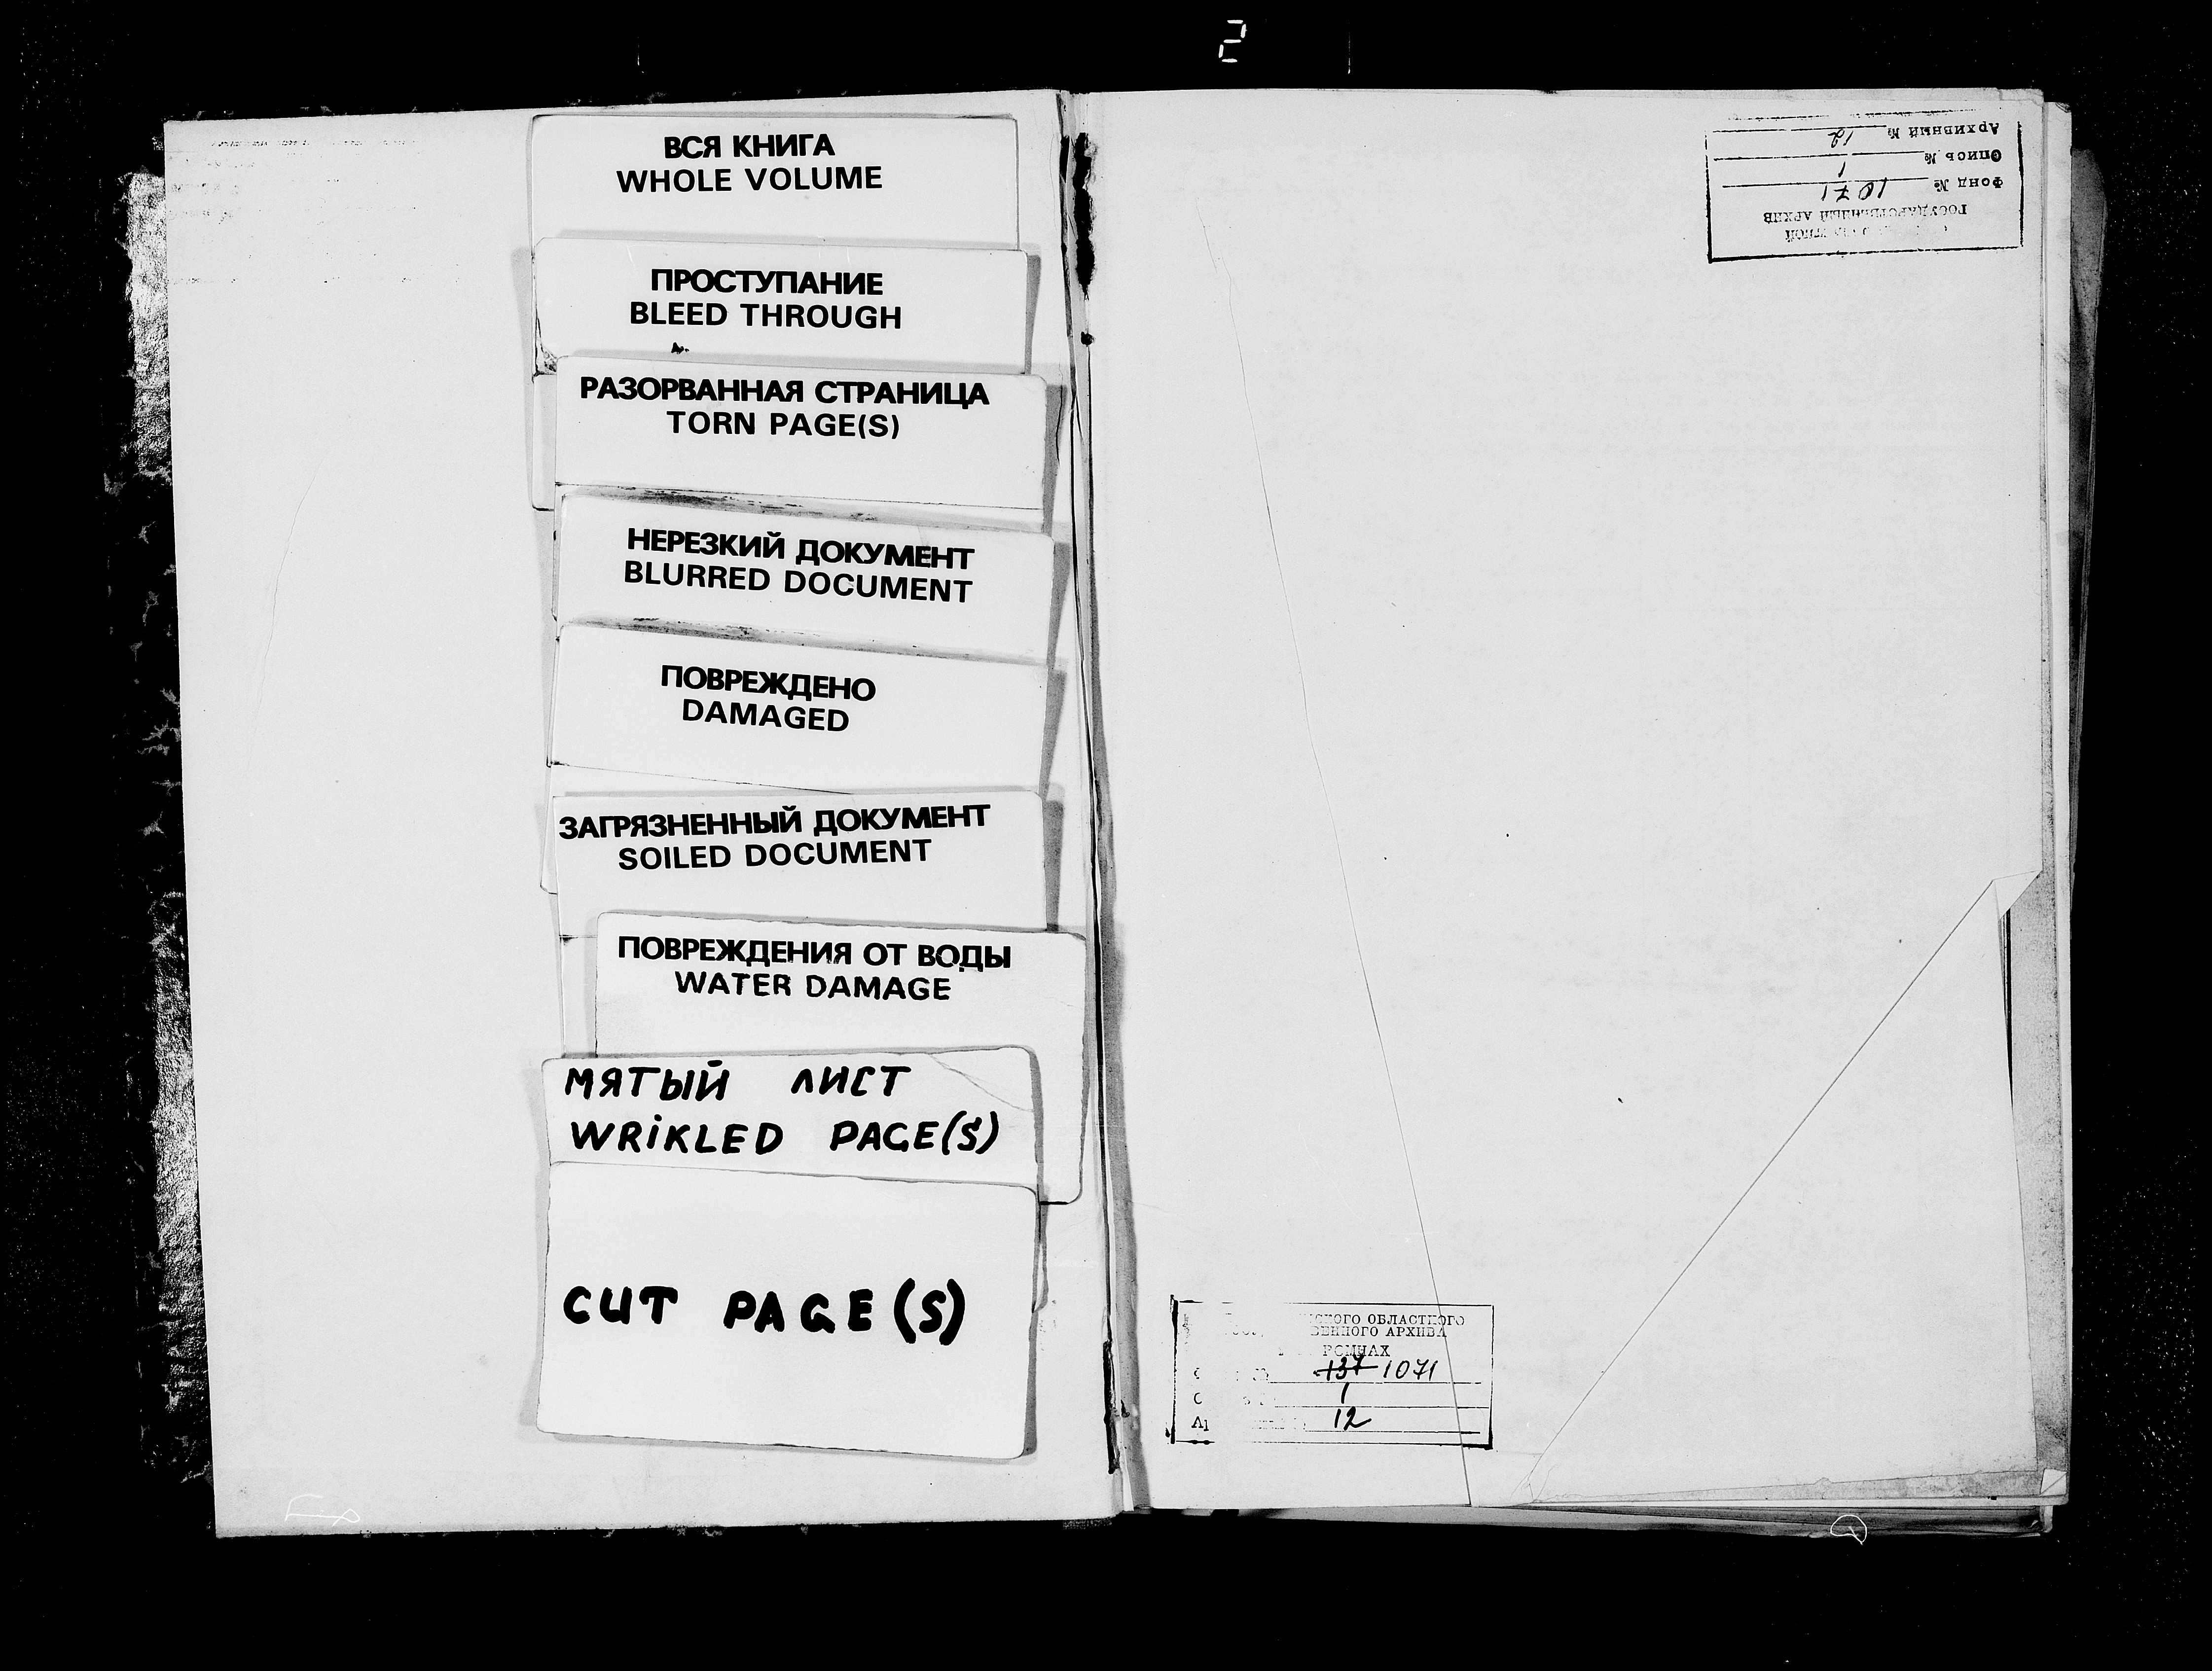 2
ВСЯ КНИГА
WHOLE VOLUME
ПРОСТУПАНИЕ
BLEED THROUGH
РАЗОРВАННАЯ СТРАНИЦА
TORN PAGE(S)
НЕРЕЗКИЙ ДОКУМЕНТ
BLURRED DOCUMENT
ПОВРЕЖДЕНО
DAMAGED
ЗАГРЯЗНЕННЫЙ ДОКУМЕНТ
SOILED DOCUMENT
ПОВРЕЖДЕНИЯ ОТ ВОДЫ
WATER DAMAGE
МЯТЫЙ ЛИСТ
WRIKLED PAGE(S)
CUT PAGE(S)
ГОСУДАРСТВЕННЫЙ АРХИВ
Фонд № 1071
Опись № 1
Архивный № 12
ОБЛАСТНОГО
АРХИВА
РОМНАХ
137 1071
1
12